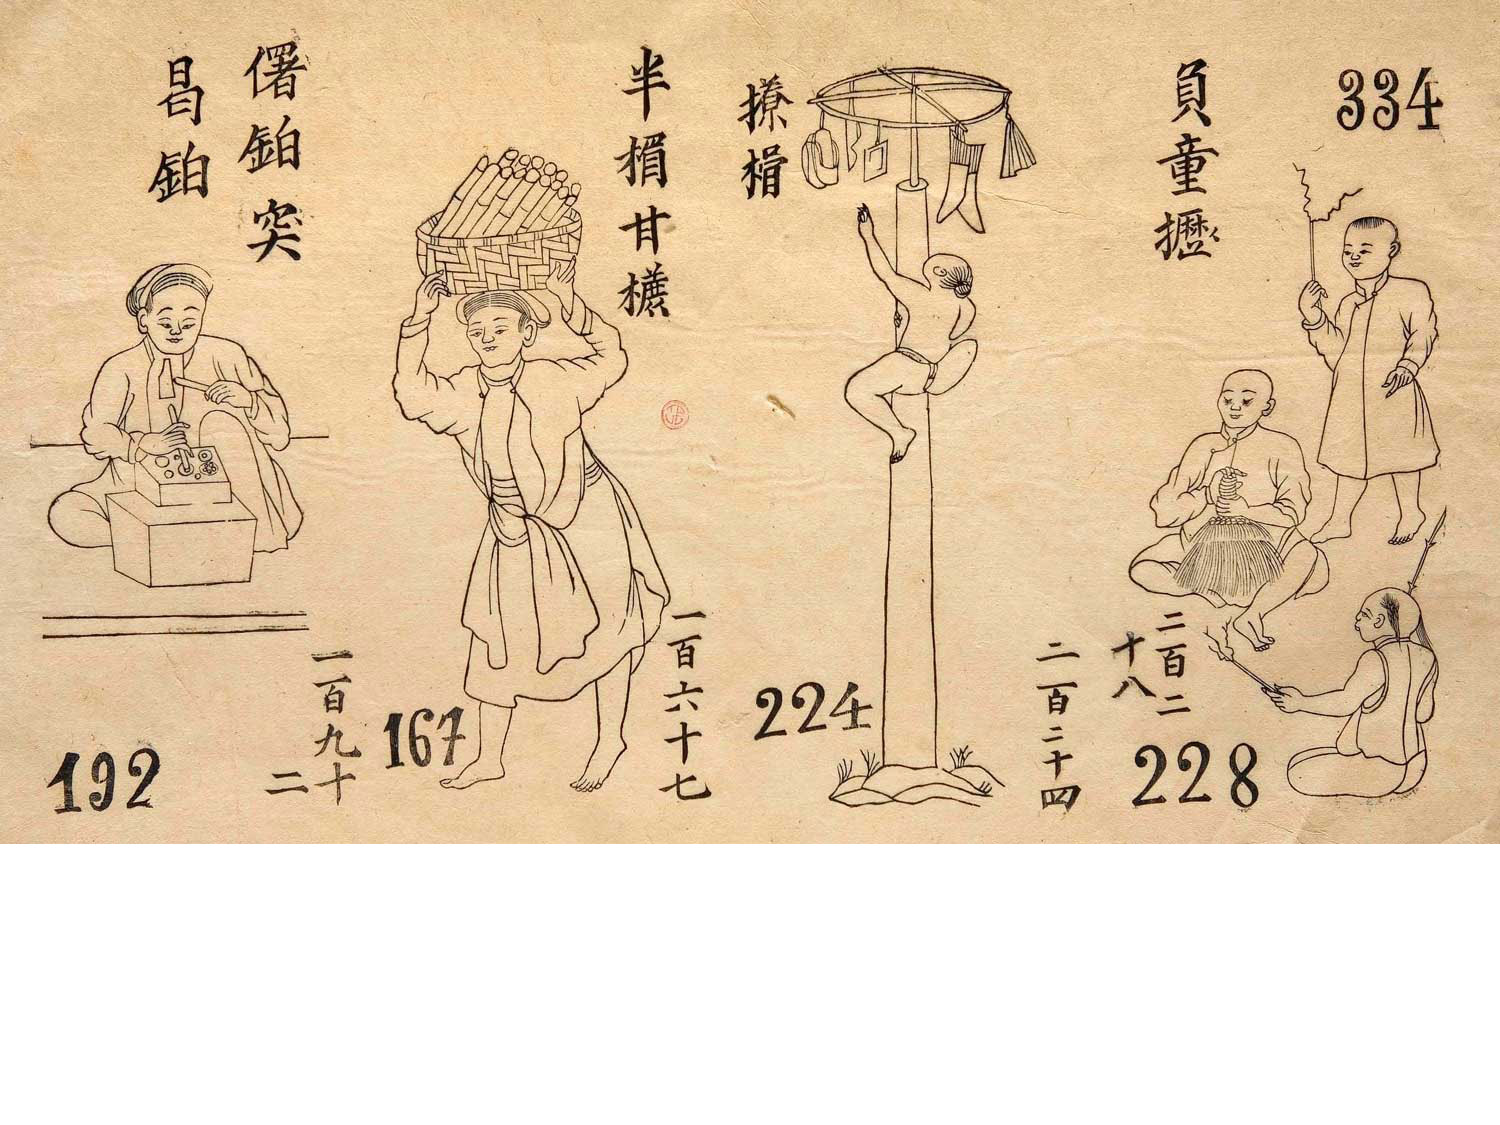 334
負童攊
二百二
十八
228
撩
二百二十四
224
半 甘
一百六十七
167
鉑突
昌鉑
一百九十
二
192